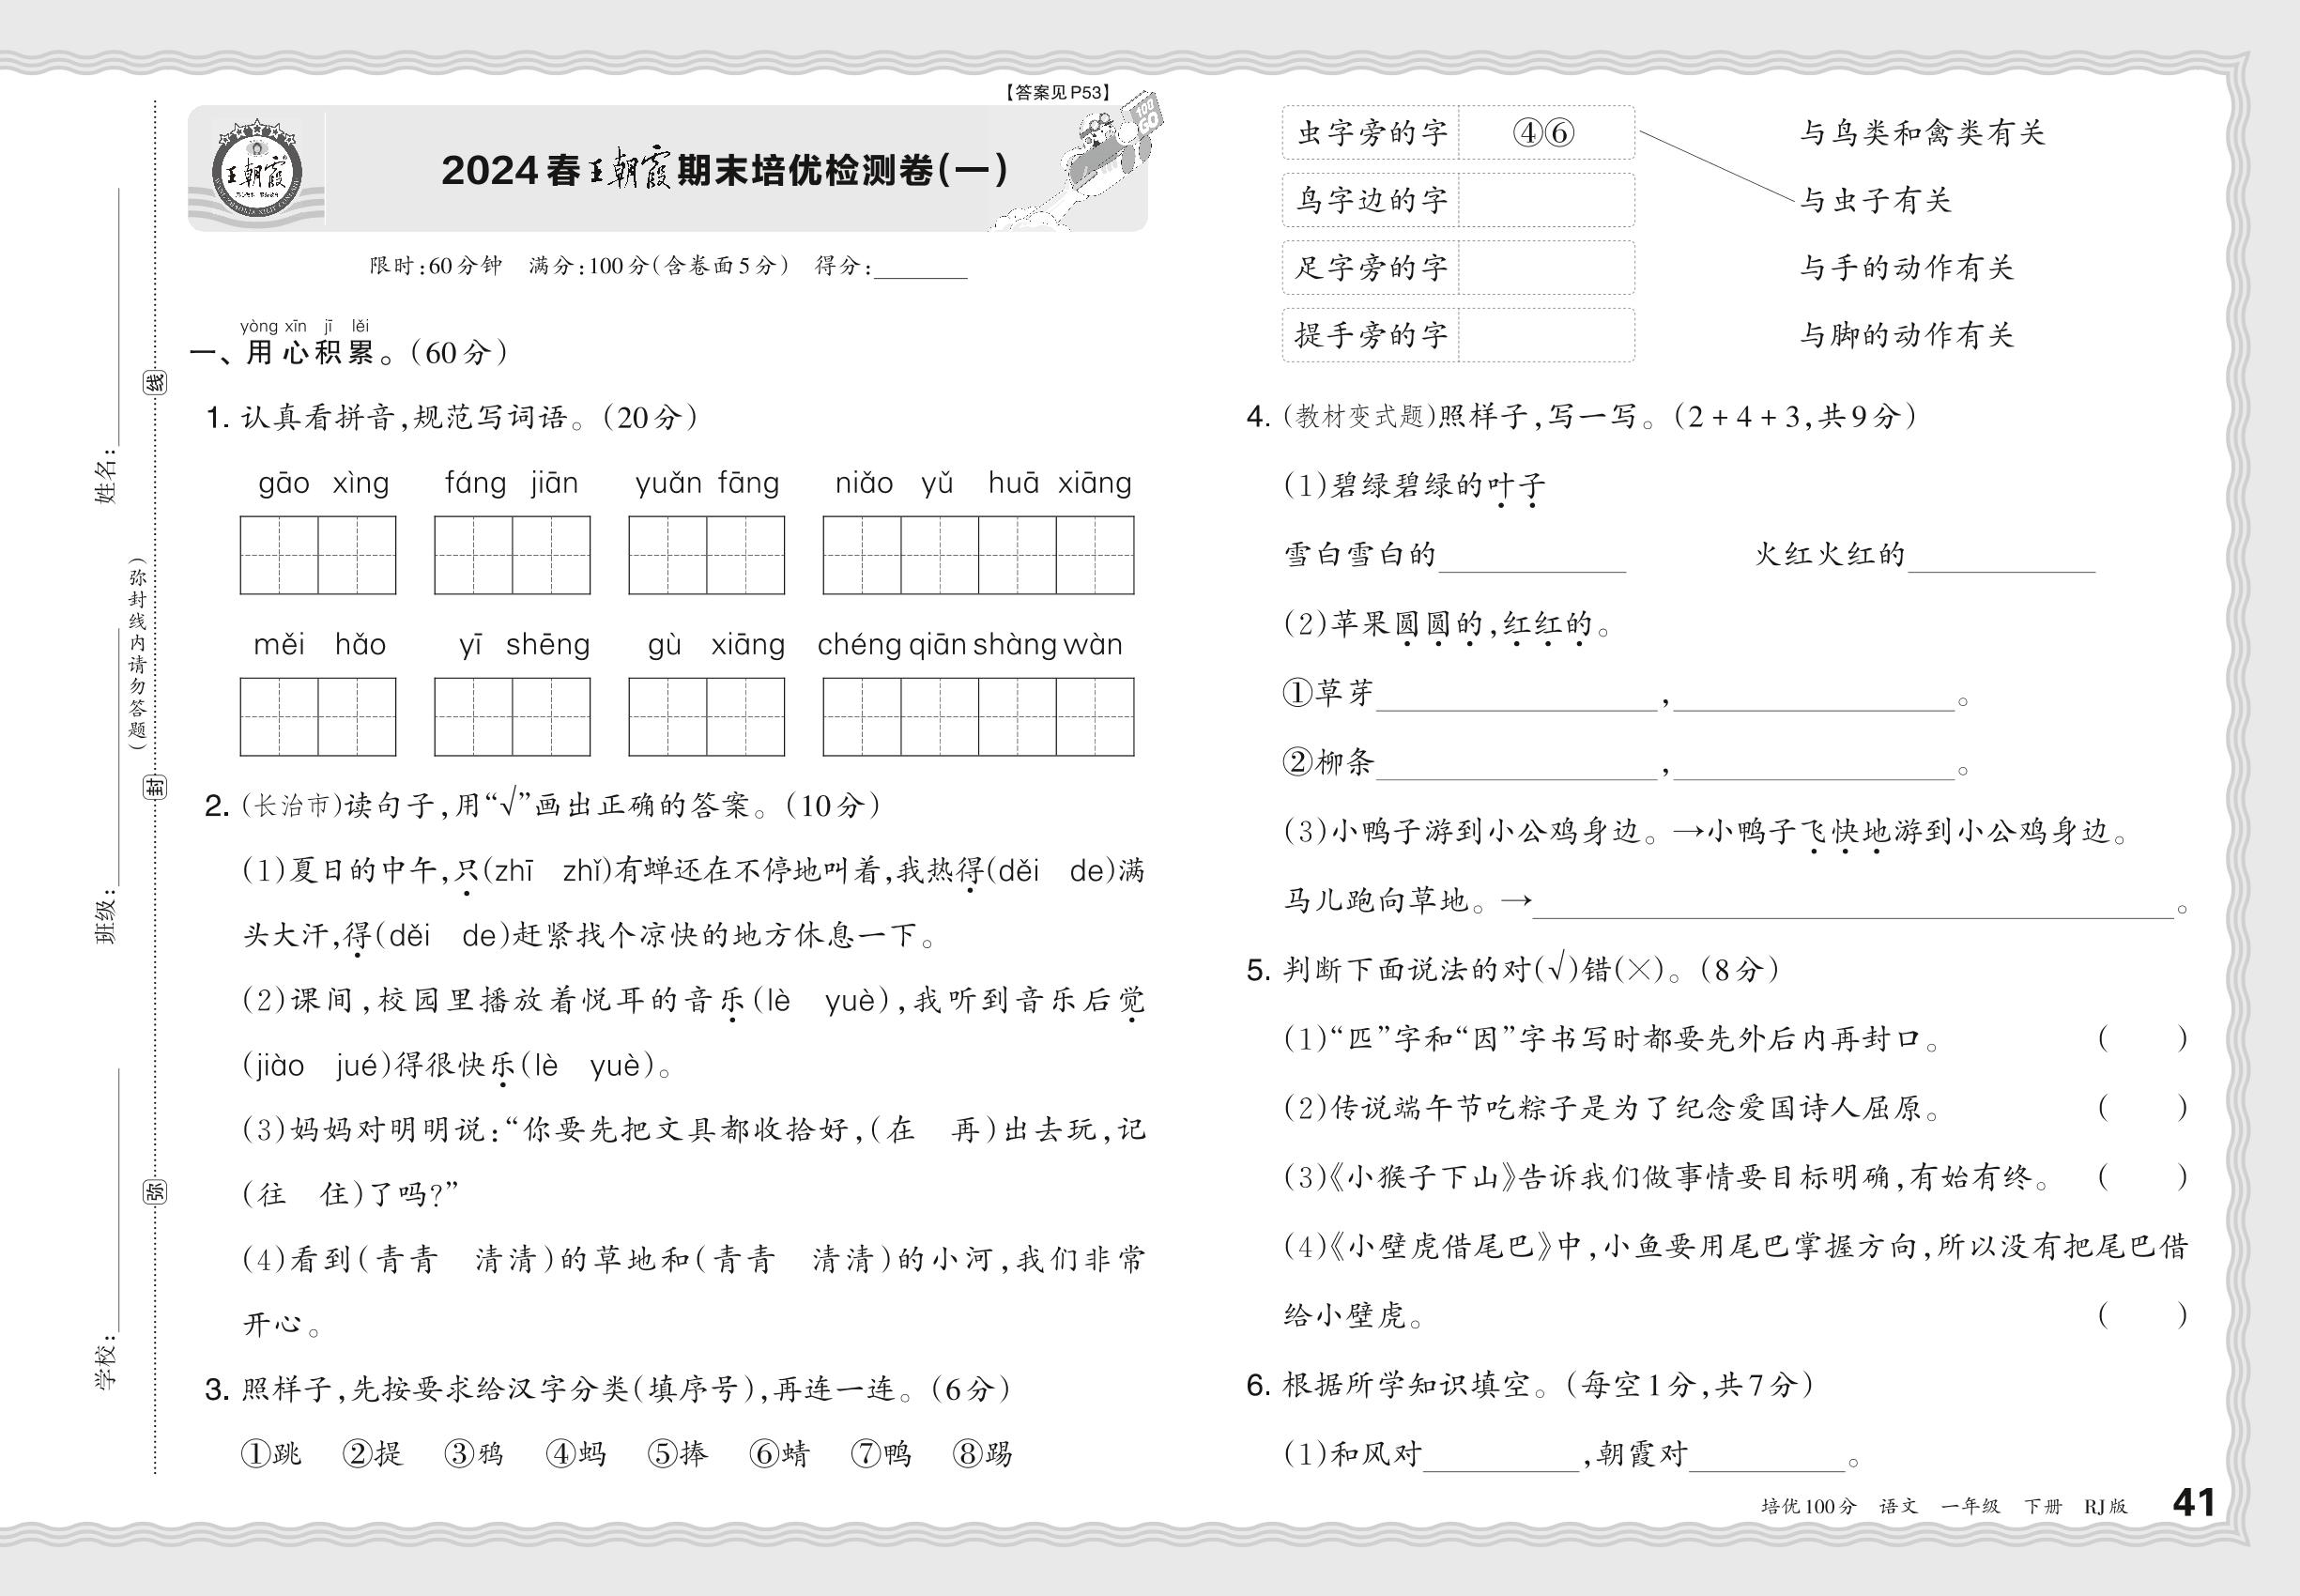 【答案见P53】
2024春王朝霞期末培优检测卷(一)
限时:60分钟 满分:100分(含卷面5分) 得分:________
yòng xīn jī lěi
一、用心积累。(60分)
1. 认真看拼音,规范写词语。(20分)
gāo xìng fáng jiān yuǎn fāng niǎo yǔ huā xiāng
měi hǎo yī shēng gù xiāng chéng qiān shàng wàn
2. (长治市)读句子,用“√”画出正确的答案。(10分)
(1)夏日的中午,只(zhī zhǐ)有蝉还在不停地叫着,我热得(děi de)满
头大汗,得(děi de)赶紧找个凉快的地方休息一下。
(2)课间,校园里播放着悦耳的音乐(lè yuè),我听到音乐后觉
(jiào jué)得很快乐(lè yuè)。
(3)妈妈对明明说:“你要先把文具都收拾好,(在 再)出去玩,记
(往 住)了吗?”
(4)看到(青青 清清)的草地和(青青 清清)的小河,我们非常
开心。
3. 照样子,先按要求给汉字分类(填序号),再连一连。(6分)
①跳 ②提 ③鸦 ④蚂 ⑤捧 ⑥蜻 ⑦鸭 ⑧踢
虫字旁的字 ④⑥ 与鸟类和禽类有关
鸟字边的字 与虫子有关
足字旁的字 与手的动作有关
提手旁的字 与脚的动作有关
4. (教材变式题)照样子,写一写。(2+4+3,共9分)
(1)碧绿碧绿的叶子
雪白雪白的________ 火红火红的________
(2)苹果圆圆的,红红的。
①草芽________,________。
②柳条________,________。
(3)小鸭子游到小公鸡身边。→小鸭子飞快地游到小公鸡身边。
马儿跑向草地。→________。
5. 判断下面说法的对(√)错(×)。(8分)
(1)“匹”字和“因”字书写时都要先外后内再封口。 ( )
(2)传说端午节吃粽子是为了纪念爱国诗人屈原。 ( )
(3)《小猴子下山》告诉我们做事情要目标明确,有始有终。 ( )
(4)《小壁虎借尾巴》中,小鱼要用尾巴掌握方向,所以没有把尾巴借
给小壁虎。 ( )
6. 根据所学知识填空。(每空1分,共7分)
(1)和风对________,朝霞对________。
培优100分 语文 一年级 下册 RJ版 41
学校:________ 班级:________ 姓名:________
(弥封线内请勿答题)
弥 封 线